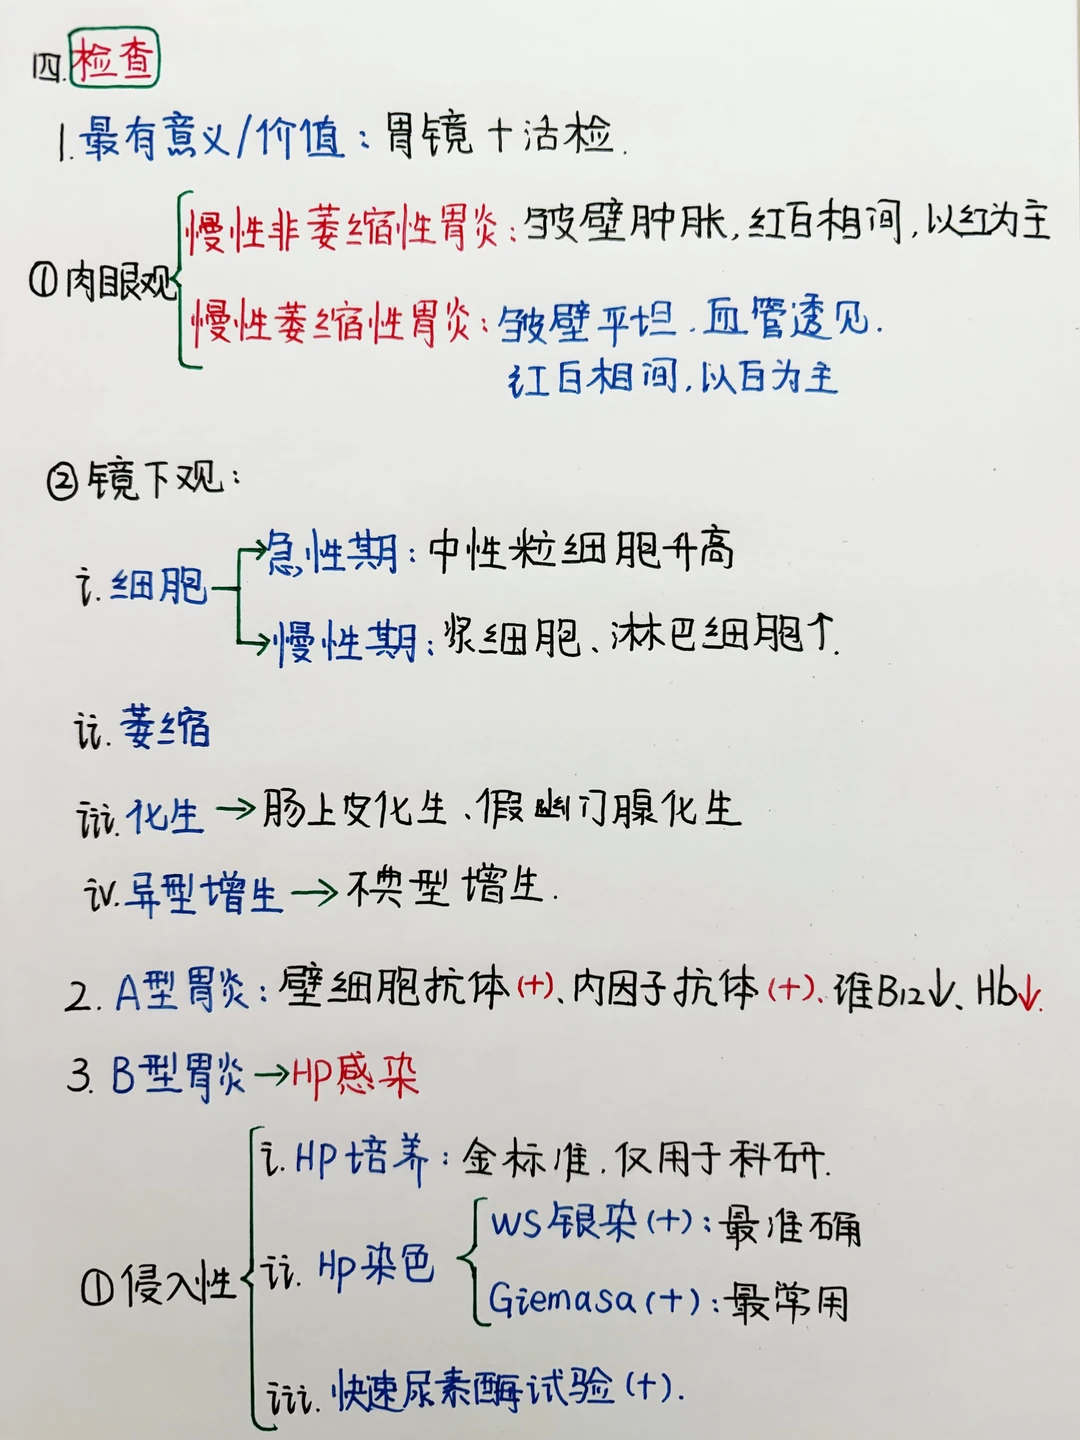 四.检查
1.最有意义/价值:胃镜+活检.
①肉眼观
慢性非萎缩性胃炎:皱壁肿胀,红白相间,以红为主
慢性萎缩性胃炎:皱壁平坦.血管透见.
红白相间,以白为主
②镜下观:
i.细胞
急性期:中性粒细胞升高
慢性期:浆细胞、淋巴细胞↑.
ii.萎缩
iii.化生→肠上皮化生、假幽门腺化生
iv.异型增生→不典型增生.
2.A型胃炎:壁细胞抗体(+)、内因子抗体(+).维B12↓、Hb↓.
3.B型胃炎→HP感染
①侵入性
i.HP培养:金标准.仅用于科研.
ii.Hp染色
WS银染(+):最准确
Giemasa(+):最常用
iii.快速尿素酶试验(+).